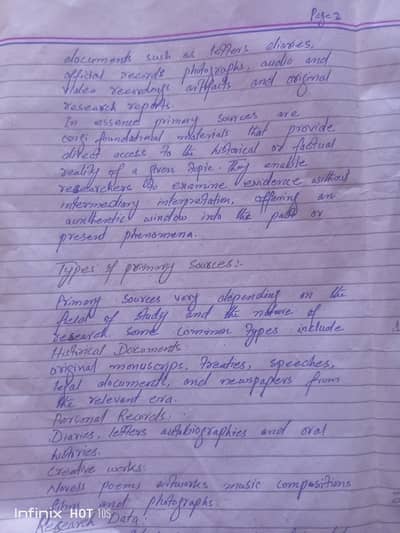 Page 2
documents such as letters diaries,
official records photographs, audio and
video recordings artifacts and original
research reports.
In essence primary sources are
foundational materials that provide
direct access to the historical or factual
reality of a given topic. They enable
researchers to examine evidence without
intermediary interpretation, offering an
authentic window into the past or
present phenomena.
Types of primary sources:-
Primary sources vary depending on the
field of study and the nature of
research some common types include
Historical Documents
original manuscrips, treaties, speeches,
legal documents, and newspapers from
the relevant era.
Personal Records:
Diaries, letters autobiographies and oral
histories.
Creative works:
Novels poems artworks music compositions
films and photographs.
Research Data:
Infinix HOT 10S